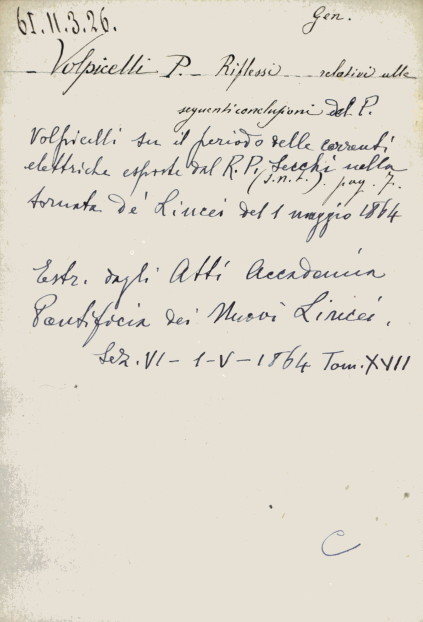 61.11.3.26.
Gen.
Volpicelli P. Riflessi relativi alle
seguenti conclusioni del P.
Volpicelli su il periodo delle correnti
elettriche esposte dal R. P. Secchi nella
(s.n.t.). pag. 7.
tornata de' Lincei del 1 maggio 1864
Estr. dagli Atti Accademia
Pontificia dei Nuovi Lincei.
Sez. VI - 1-V-1864 Tom. XVII
C